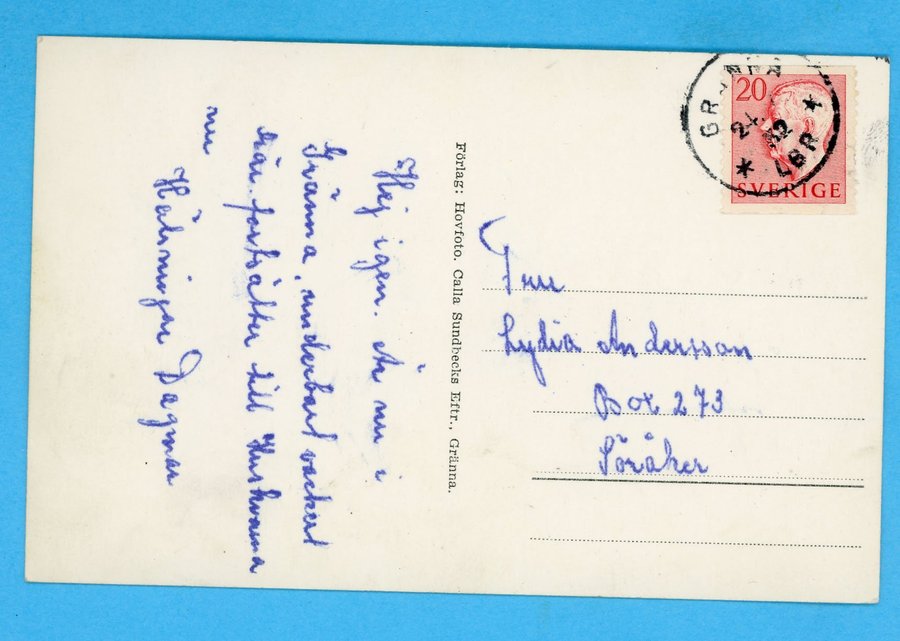 Hej igen. Är nu i
Gränna, underbart vackert
här. fortsätter till Huskvarna
nu
Hälsningar Dagmar
Förlag: Hovfoto. Calla Sundbecks Eftr., Gränna.
GRÄNNA
LBR
20
SVERIGE
Fru
Lydia Andersson
Box 273
Söråker